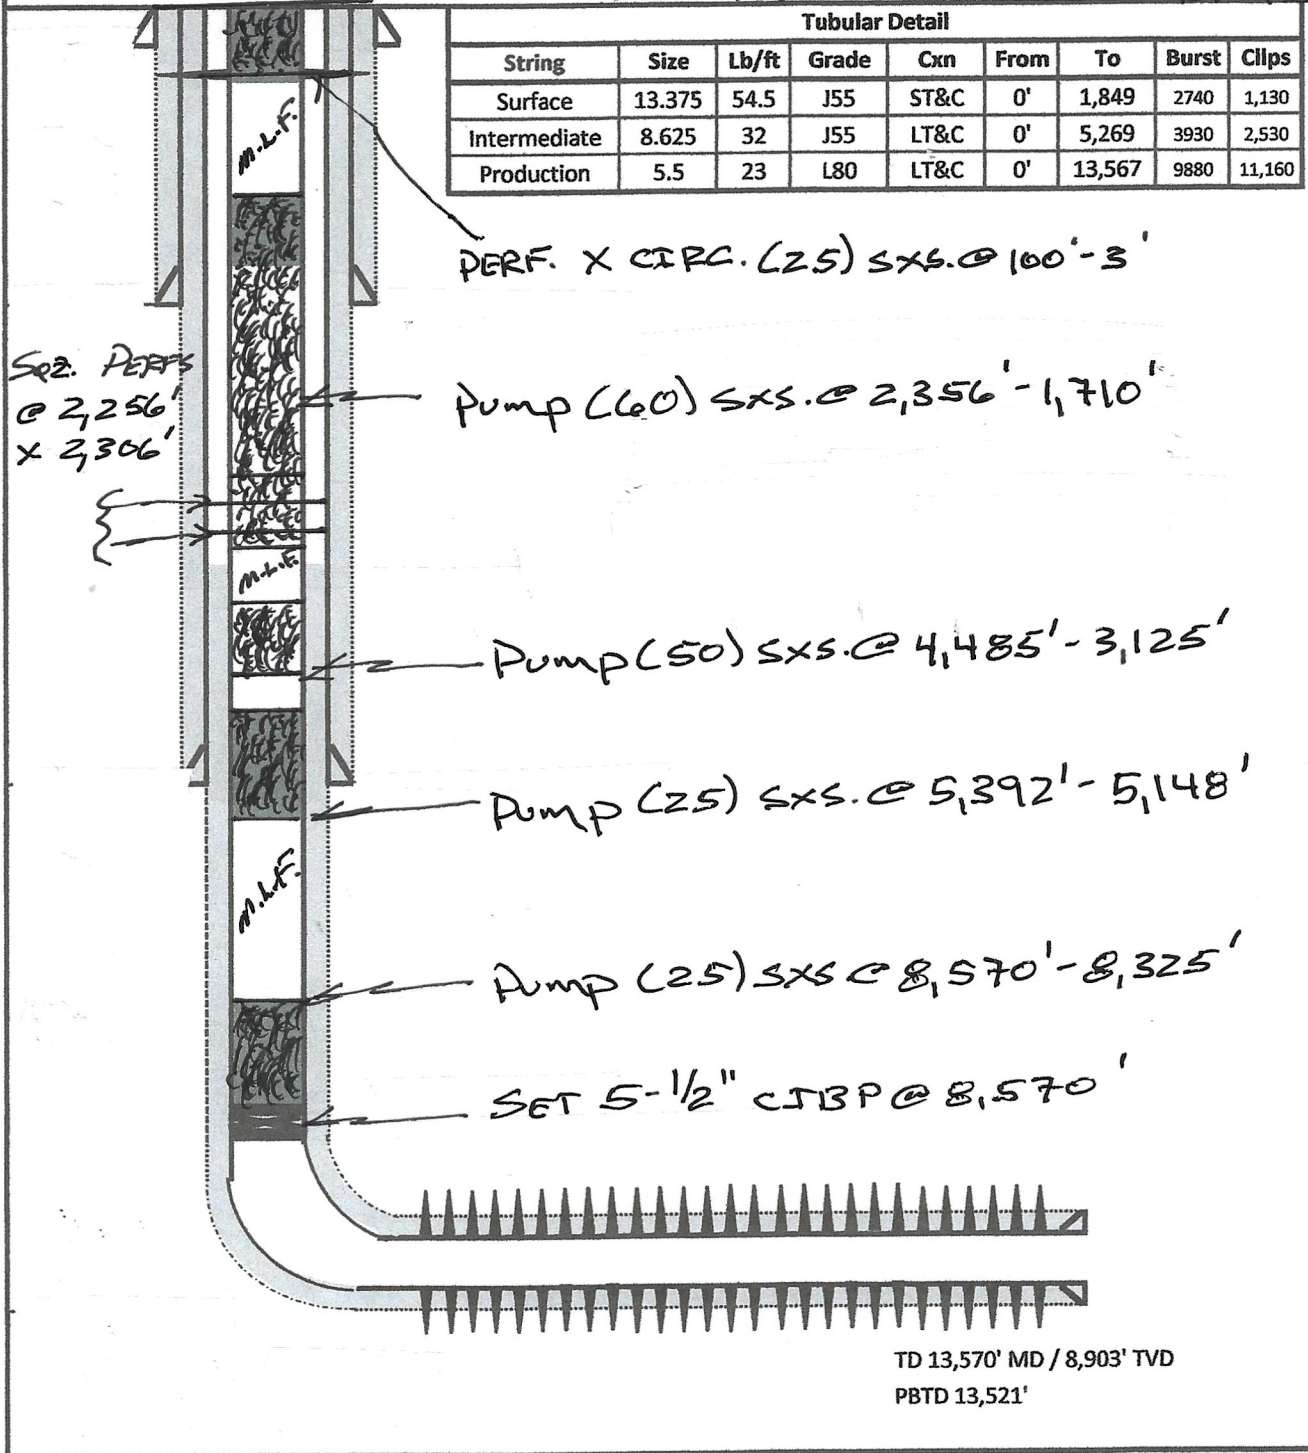 Tubular Detail
String Size Lb/ft Grade Cxn From To Burst Cllps
Surface 13.375 54.5 J55 ST&C 0' 1,849 2740 1,130
Intermediate 8.625 32 J55 LT&C 0' 5,269 3930 2,530
Production 5.5 23 L80 LT&C 0' 13,567 9880 11,160
M.L.F.
PERF. X CIRC. (25) SXS. @ 100'-3'
Sqz. PERFS
@ 2,256'
x 2,306'
Pump (60) SXS. @ 2,356'-1,710'
M.L.F.
Pump (50) SXS. @ 4,485'-3,125'
Pump (25) SXS. @ 5,392'-5,148'
M.L.F.
Pump (25) SXS @ 8,570'-8,325'
SET 5-1/2" CIBP @ 8,570'
TD 13,570' MD / 8,903' TVD
PBTD 13,521'